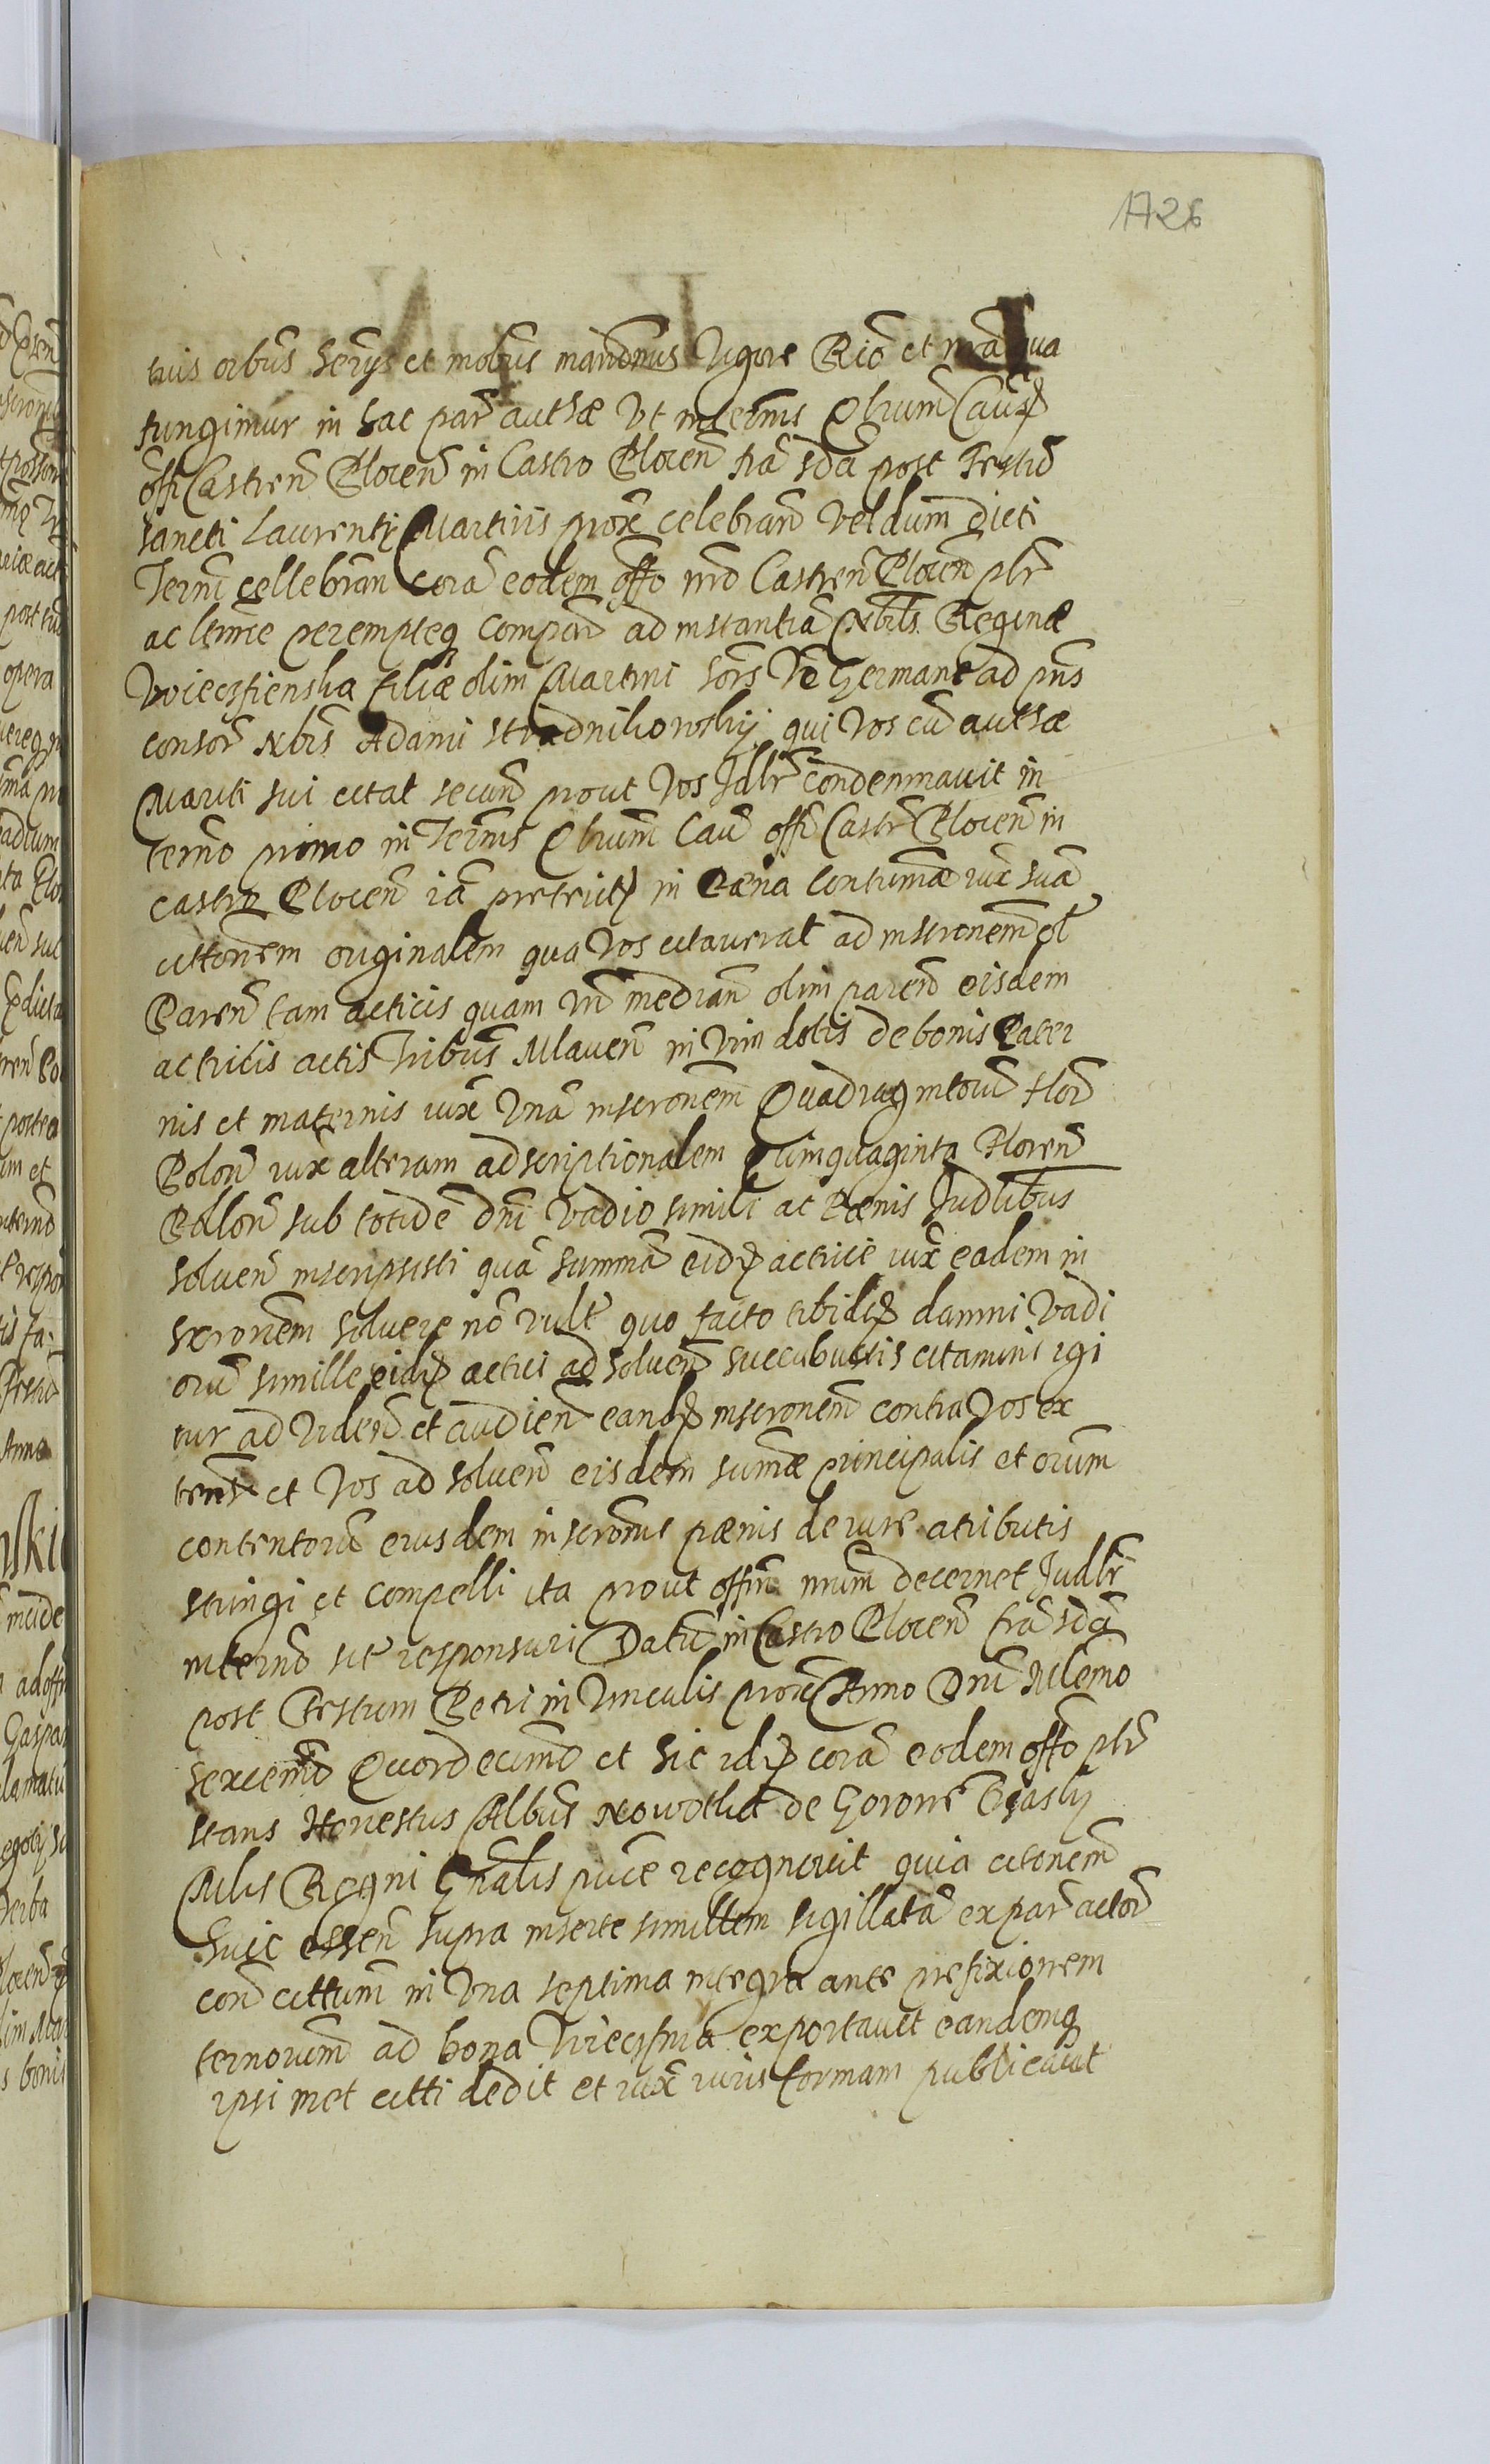 1726
tuis oibus herys et mobus mandmus Vigore Rio et nra qua
fungimur in hac par autha Vt in termis Qlrum Caus
offi Castren Plocen in Castro Plocen fra 2da post Festu
Sancti Laurenty Martiris prox celebran vel dum dicti
Termi cellebran Cora eodem offo nro Castren Plocen plr
ac ltmie perempteq compar ad instantia Nblis Reginæ
Woiecsfienska filiæ olim Martini Sors Ve Germane ad pns
consor Nbis Adami Stradnikowsky qui Vos cu autha
Mariti sui citat secun prout Vos Jdlr condemnauit in
termo primo in Termis Qlrum Cau offi Castr Plocen in
castro Plocen ia preterit in Pæna Contumæ iux sua
cittonem originalem qua Vos citauerat ad inscronem ol
Paren tam acticis quam Vn median olim paren eisdem
actricis actis Tribus Mlauen in Vim dotis de bonis Pater
nis et maternis iux Vna inscronem Quadragintou Flor
Polon iux alteram adscriptionalem Quinquaginta Floren
Pollon sub totide dni Vadio simili ac Pænis Judlibus
soluen inscripsisti qua summa eid actrici iux eadem in
scronem soluere no vult quo facto tibid damni Vadi
oru simille eid actici ad soluen succubuistis citamini igi
tur ad Viden et audien eand inscronem contra Vos ex
tens et Vos ad soluen eisdem sumæ principalis et orum
contentoru eiusdem inscronis pænis de iure atributis
stringi et compelli ita prout offm nrum decernet Judlr
in termo sit responsuri Datu in Castro Plocen fra 2da
post Festum Petri in Vinculis prox Anno Dni Mlemo
sexcenmo Quordecimo et Sic id cora eodem offo plr
stans Honestus Albus Nowotka de Gorone Bjasly
Mlis Regni Gnalis puce recognouit quia citonem
huic essen supra inserte simillem sigillata ex par actor
con cittum in Vna septima integra ante prefixionem
ternorum ad bona Wiecsfnia exportauit eandemq
ipsi met citti dedit et iux iuris formam publicauit